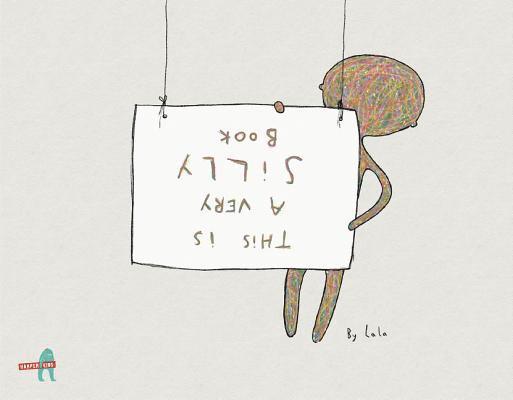 THiS iS
A VERY
SiLLY
BOOK
By Lala
HARPER KIDS